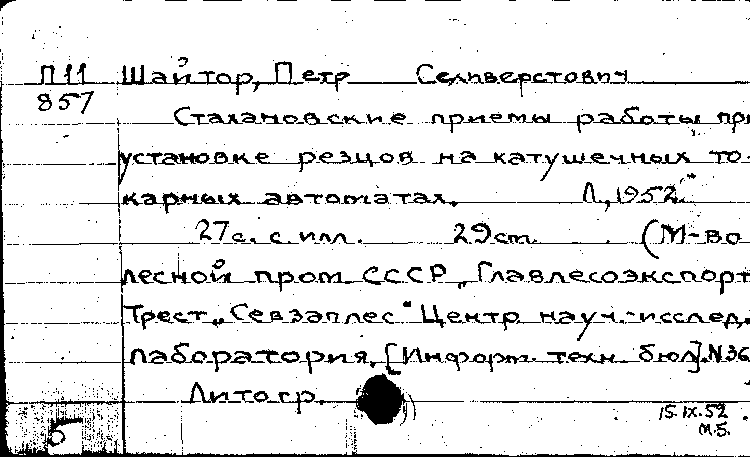 П11 Шайтор, Петр Селиверстович
857
Стахановские приемы работы при
установке резцов на катушечных то-
карных автоматах. Л., 1952.
27с. с илл. 29см. (М-во
лесной пром. СССР „Главлесоэкспорт
Трест „Севзаплес" Центр науч.-исслед.
лаборатория. [Информ. техн. бюл]. №36
Литогр.
15.IX.52
М.Б.
5